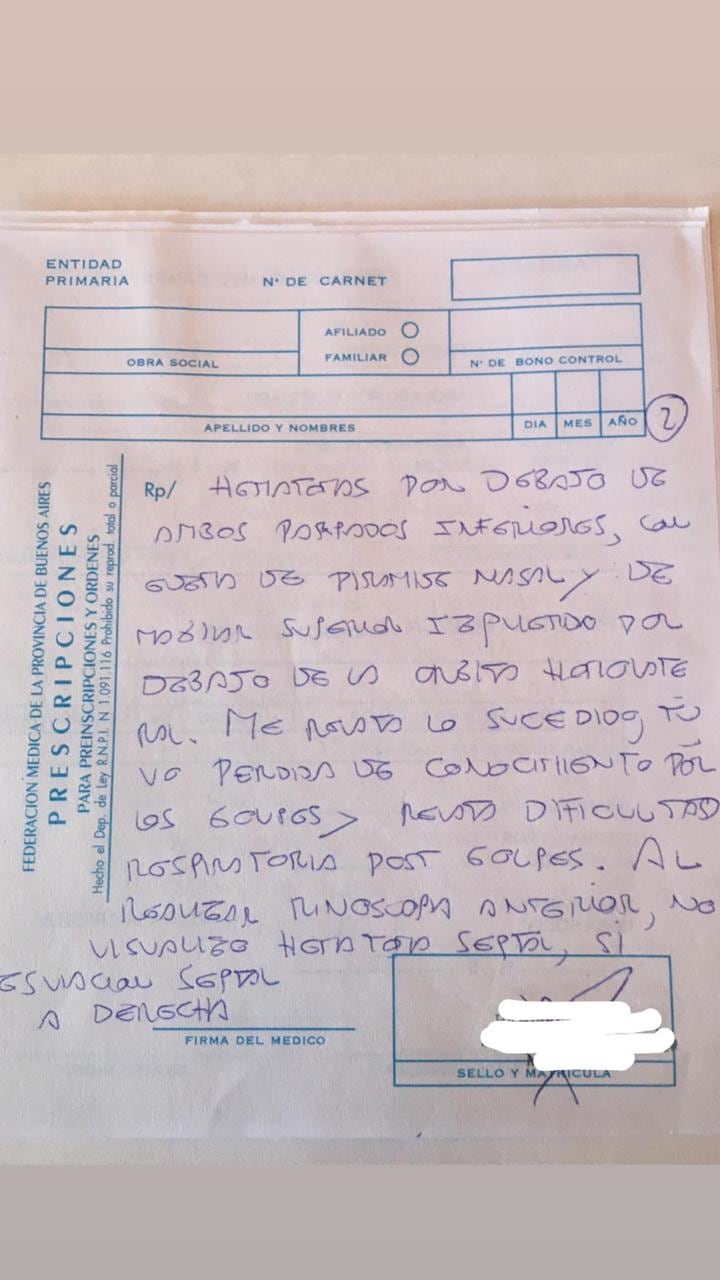 ENTIDAD
PRIMARIA
N° DE CARNET
AFILIADO
FAMILIAR
OBRA SOCIAL
N° DE BONO CONTROL
APELLIDO Y NOMBRES
DIA MES AÑO
2
FEDERACION MEDICA DE LA PROVINCIA DE BUENOS AIRES
PRESCRIPCIONES
PARA PREINSCRIPCIONES Y ORDENES
Hecho el Dep. de Ley R.N.P.I. N 1.091.116 Prohibido su reprod. total o parcial
Rp/ HEMATOMAS POR DEBAJO DE
AMBOS PARPADOS INFERIORES, CON
DE PIRAMIDE NASAL Y DE
MAXILAR SUPERIOR IZQUIERDO POR
DEBAJO DE LA ORBITA HOMOLATE
RAL. ME RELATA LO SUCEDIDO, TU
VO PERDIDA DE CONOCIMIENTO POR
LOS GOLPES Y RELATA DIFICULTAD
RESPIRATORIA POST GOLPES. AL
REALIZAR RINOSCOPIA ANTERIOR, NO
VISUALIZO HEMATOMA SEPTAL, SI
ESVIACION SEPTAL
A DERECHA
FIRMA DEL MEDICO
SELLO Y MATRICULA